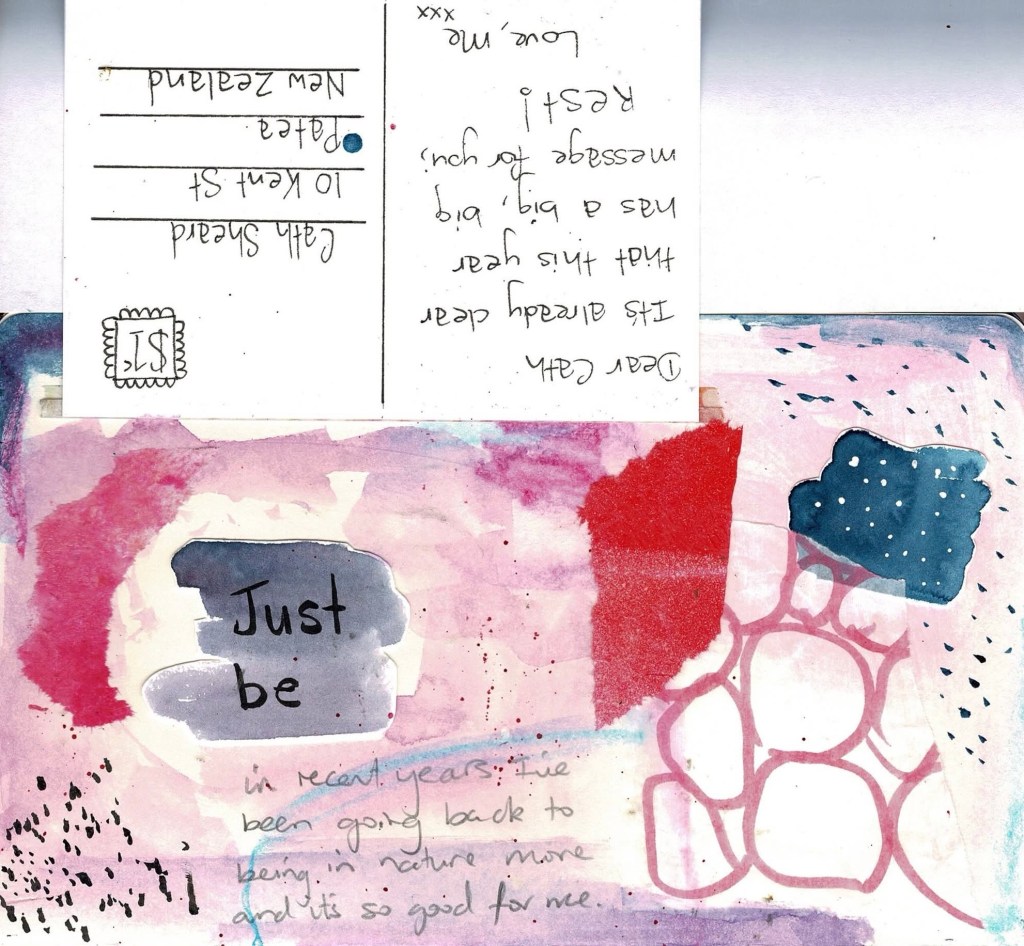 Dear Cath
It's already clear
that this year
has a big, big
message for you;
Rest!
Love, me
xxx
$1c
Cath Sheard
10 Kent St
Patea
New Zealand
Just
be
in recent years I've
been going back to
being in nature more
and it's so good for me.